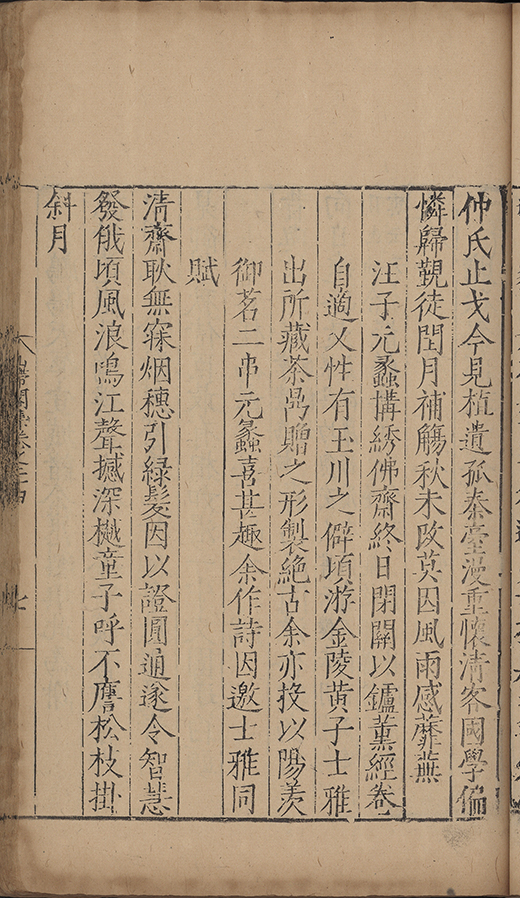 仲氏止戈今見植遺孤秦臺漫重懷清客國學偏
憐歸覲徒閏月補觴秋未改莫因風雨感蘼蕪
汪子元蠡搆綉佛齋終日閉關以鑪薰經卷
自適又性有玉川之僻頃游金陵黃子士雅
出所藏茶鼎贈之形製絕古余亦投以陽羡
御茗二弔元蠡喜甚趣余作詩因邀士雅同
賦
清齋耿無寐烟穗引綠髮因以證圓通遂令智慧
發俄頃風浪鳴江聲撼深樾童子呼不譍松枝掛
斜月
卷之十四
七